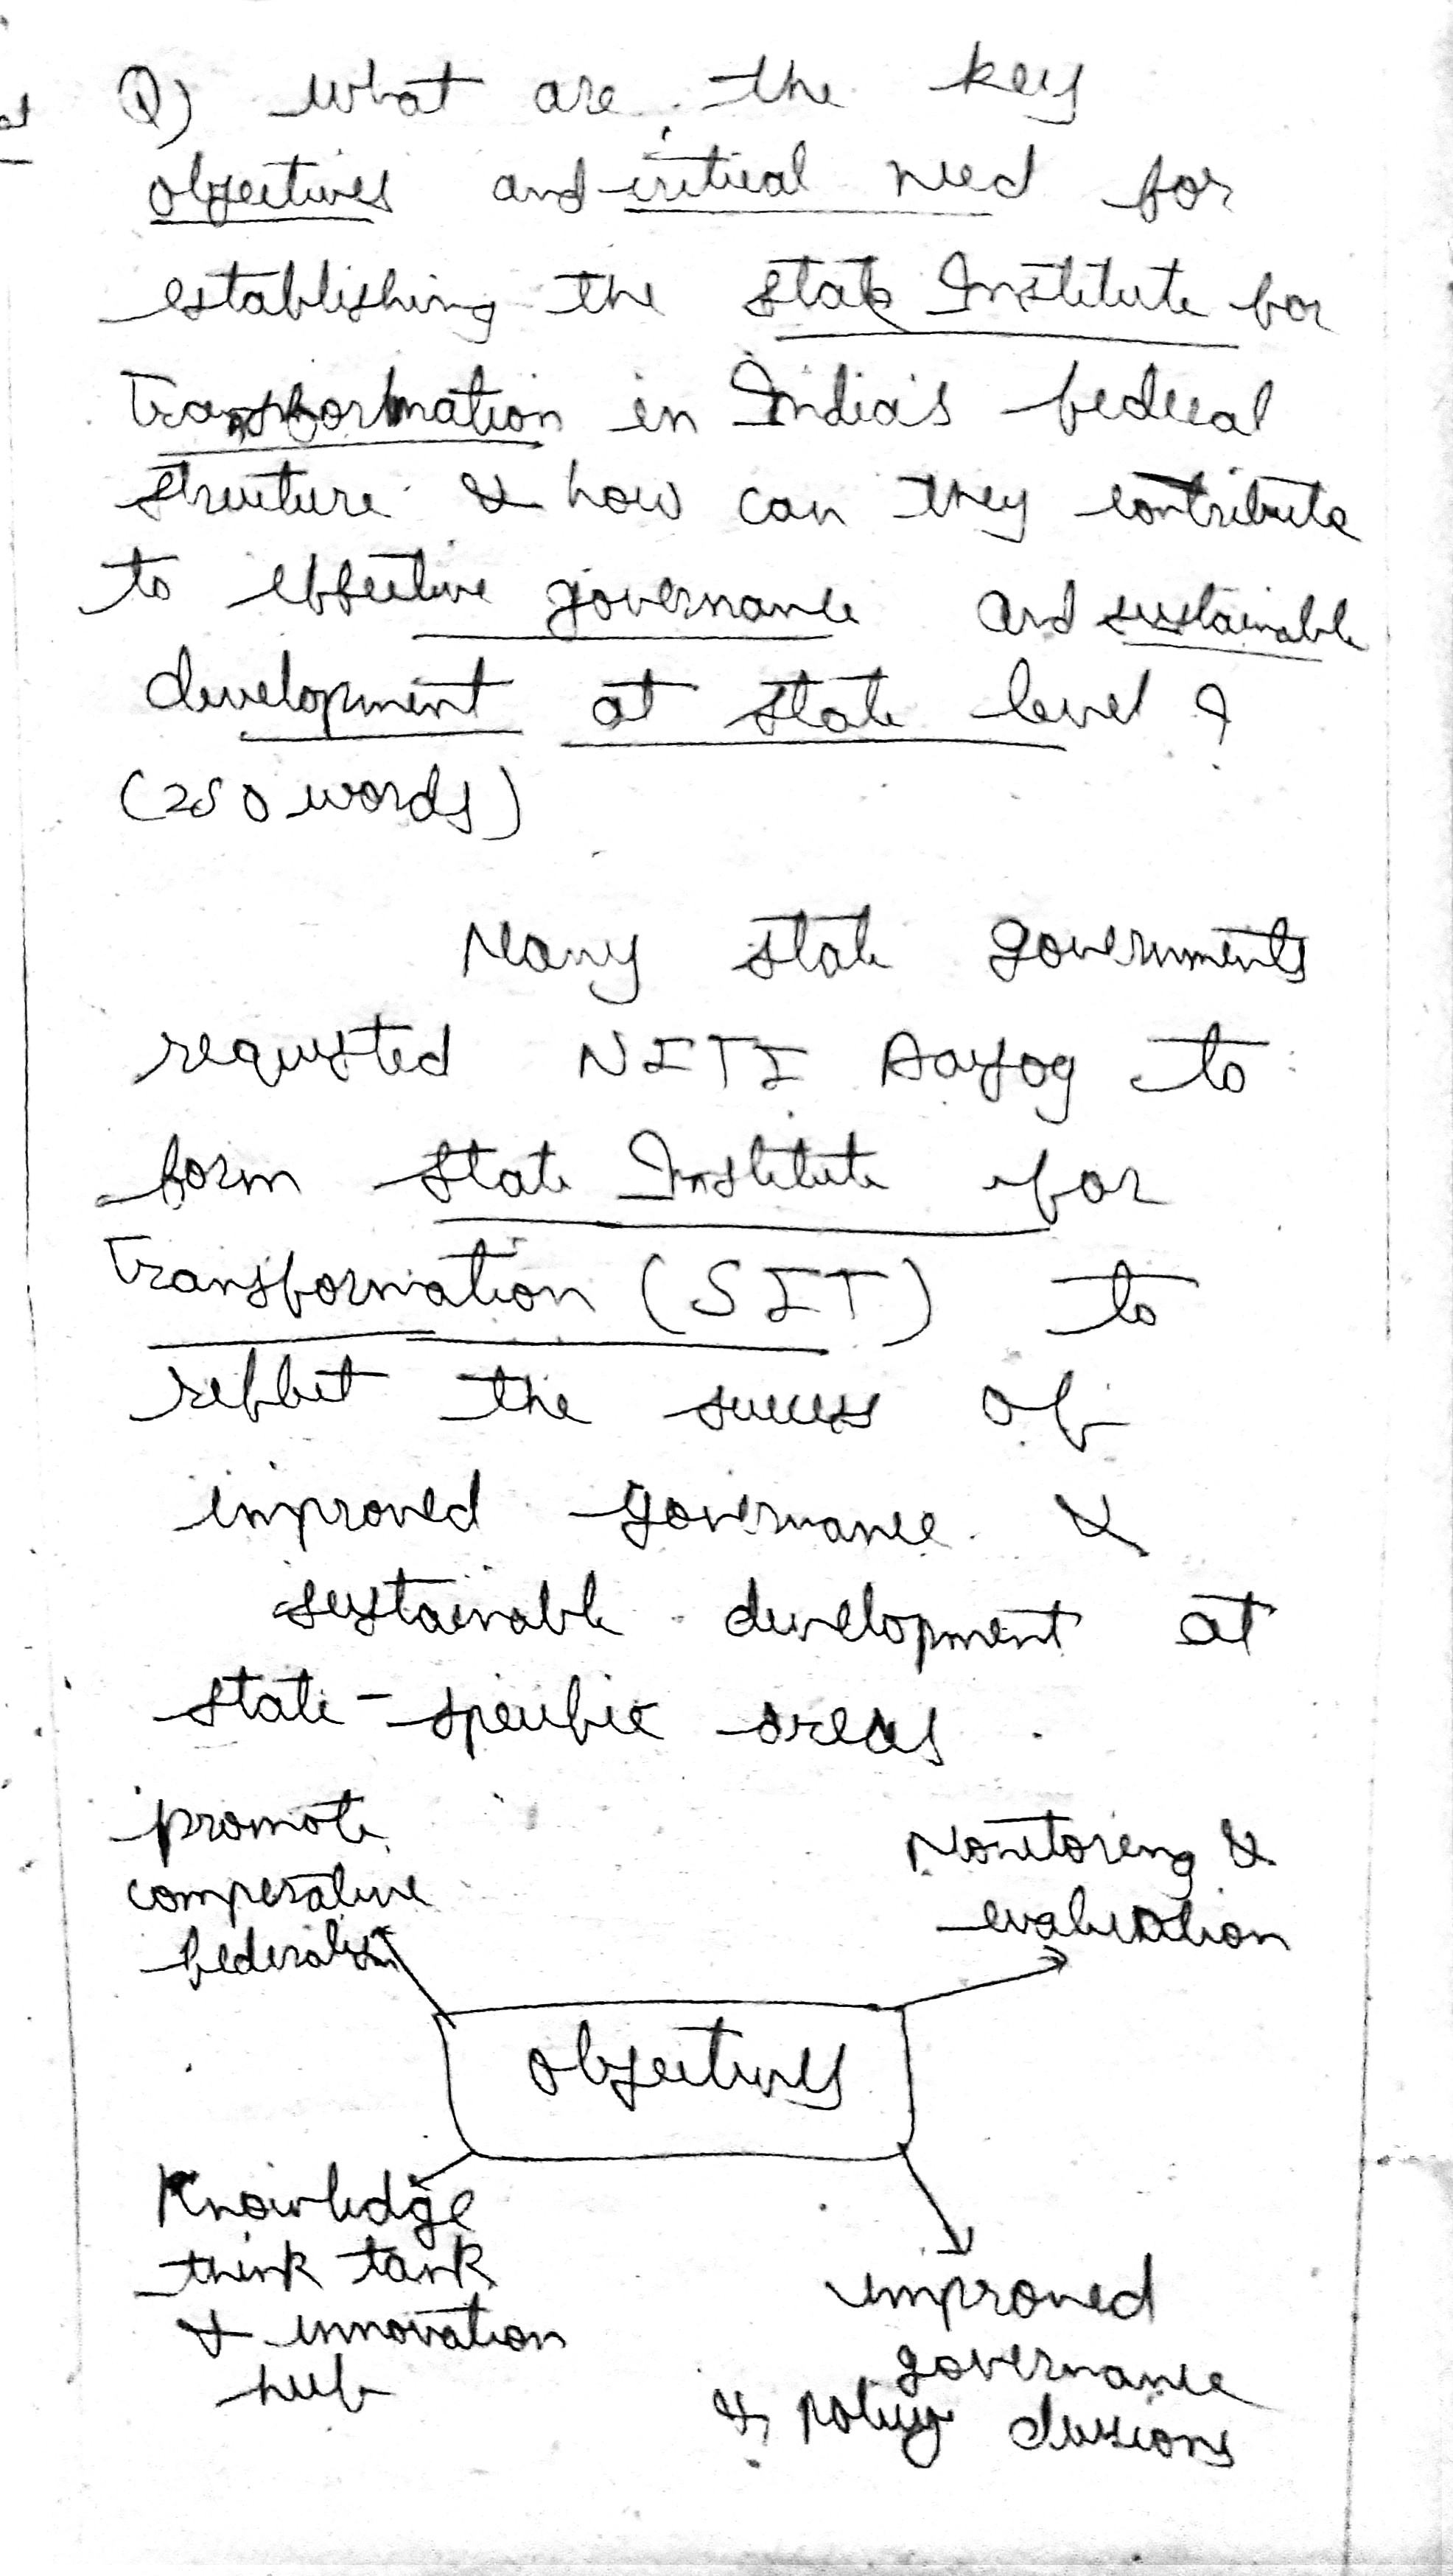 Q) What are the key
objectives and critical need for
establishing the State Institute for
Transformation in India's federal
structure & how can they contribute
to effective governance and sustainable
development at state level ?
(250 words)
Many state governments
requested NITI Aayog to
form State Institute for
Transformation (SIT) to
reflect the success of
improved governance &
sustainable development at
state-specific areas
promote
comperative
federalism
Monitoring &
evaluation
objectives
Knowledge
think tank
& innovation
hub
improved
governance
& policy decisions